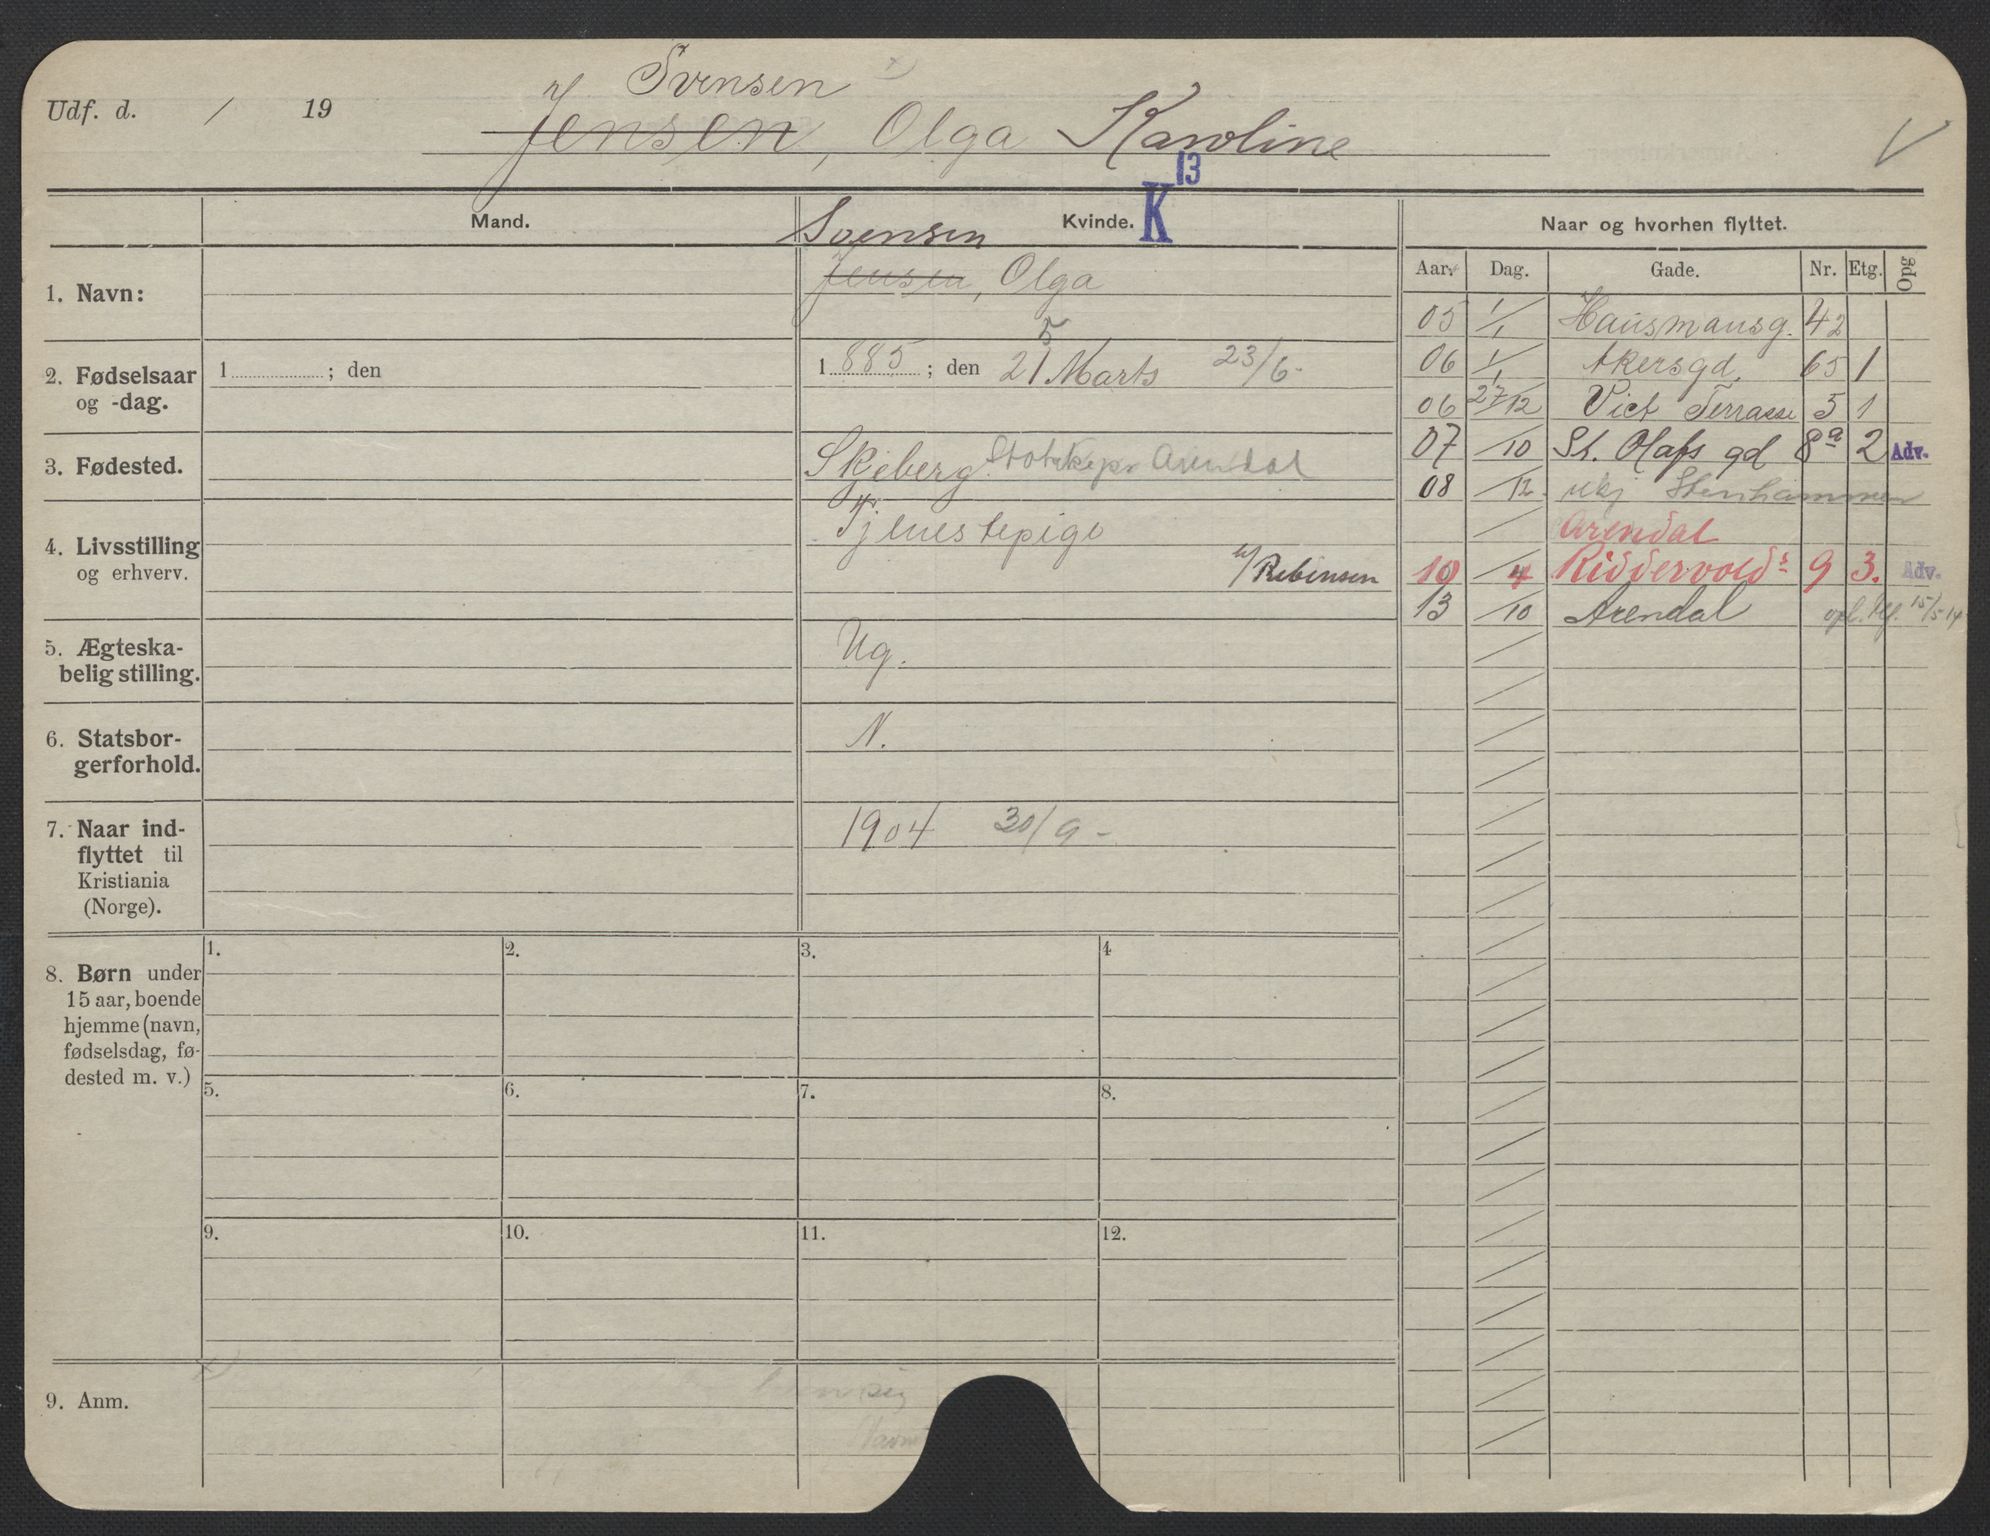 Svensen
Udf. d. / 19 Jensen, Olga Karoline
V
13
K
Mand. Kvinde. Naar og hvorhen flyttet.
Svensen
Aar. Dag. Gade. Nr. Etg. Opg
1. Navn: Jensen, Olga
05 1/1 Hausmansg. 42
5
2. Fødselsaar og -dag. 1 ; den 1 885 ; den 21 Marts 23/6-
06 1/1 Akersgd. 65 1
06 27/12 Vict Terrasse 5 1
07 /10 St. Olafs gd 8a 2 Adv.
3. Fødested. Skeberg Arendal
08 /12 Stenhammeren
Arendal
4. Livsstilling og erhverv. Tjenestepige
10 /4 Riddervolds 9 3. Adv.
13 /10 Arendal opl. 15/5 14
5. Ægteska-
belig stilling. Ug.
6. Statsbor-
gerforhold. N.
7. Naar ind-
flyttet til
Kristiania
(Norge). 1904 30/9-
8. Børn under
15 aar, boende
hjemme (navn,
fødselsdag, fø-
dested m. v.)
1. 2. 3. 4
5. 6. 7. 8.
9. 10. 11. 12.
9. Anm.